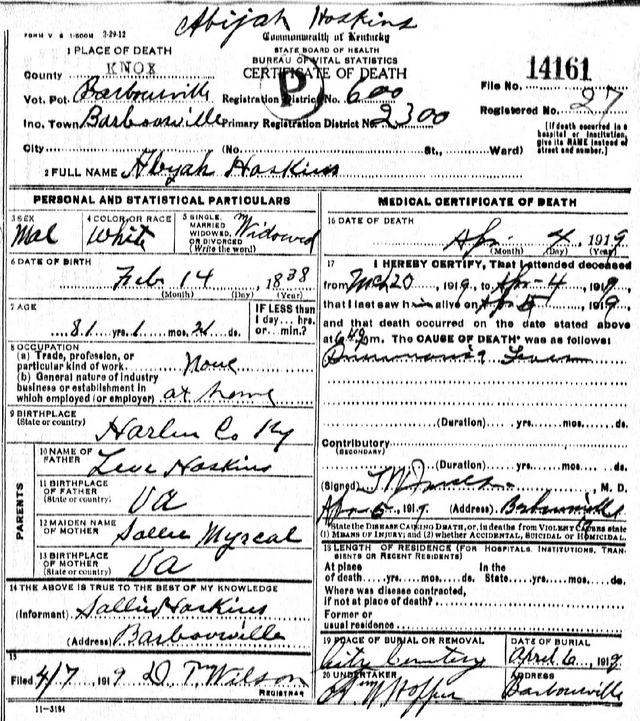 Abijah Hoskins
FORM V S 1-500M 3-29-12
Commonwealth of Kentucky
STATE BOARD OF HEALTH
BUREAU OF VITAL STATISTICS
CERTIFICATE OF DEATH
1 PLACE OF DEATH
County KNOX
Vot. Pct. Barbourville Registration District No. 600
Inc. Town Barbourville Primary Registration District No. 2300
City (No. St., Ward)
P
File No. 14161
Registered No. 27
[If death occurred in a hospital or institution, give its NAME instead of street and number.]
2 FULL NAME Abijah Hoskins
PERSONAL AND STATISTICAL PARTICULARS
3 SEX Mal
4 COLOR OR RACE White
5 SINGLE, MARRIED WIDOWED, OR DIVORCED (Write the word) Widowed
6 DATE OF BIRTH
Feb 14 1838
(Month) (Day) (Year)
7 AGE
81 yrs. 1 mos. 21 ds.
IF LESS than 1 day... hrs. or... min.?
8 OCCUPATION
(a) Trade, profession, or particular kind of work None
(b) General nature of industry business or establishment in which employed (or employer) at home
9 BIRTHPLACE (State or country)
Harlen Co Ky
PARENTS
10 NAME OF FATHER Hoskins
11 BIRTHPLACE OF FATHER (State or country) Va
12 MAIDEN NAME OF MOTHER Sallie
13 BIRTHPLACE OF MOTHER (State or country) Va
14 THE ABOVE IS TRUE TO THE BEST OF MY KNOWLEDGE
(Informant) Sallie Hoskins
(Address) Barbourville
15
Filed 4/7 1919 Wilson
REGISTRAR
11-3184
MEDICAL CERTIFICATE OF DEATH
16 DATE OF DEATH
Apr 4 1919
(Month) (Day) (Year)
17 I HEREBY CERTIFY, That I attended deceased
from Mch 20 1919, to Apr-4 1919
that I last saw him alive on Apr 1919
and that death occurred on the date stated above
at m. The CAUSE OF DEATH* was as follows:
Fever
(Duration) yrs. mos. ds.
Contributory (SECONDARY)
(Duration) yrs. mos. ds.
(Signed) M. D.
1919. (Address) Barbourville
*State the DISEASE CAUSING DEATH, or, in deaths from VIOLENT CAUSES state (1) MEANS OF INJURY; and (2) whether ACCIDENTAL, SUICIDAL or HOMICIDAL.
18 LENGTH OF RESIDENCE (FOR HOSPITALS, INSTITUTIONS, TRANSIENTS OR RECENT RESIDENTS)
At place of death yrs. mos. ds. In the State yrs. mos. ds.
Where was disease contracted, if not at place of death?
Former or usual residence
19 PLACE OF BURIAL OR REMOVAL
DATE OF BURIAL
April 6, 1919
20 UNDERTAKER
ADDRESS
Barbourville